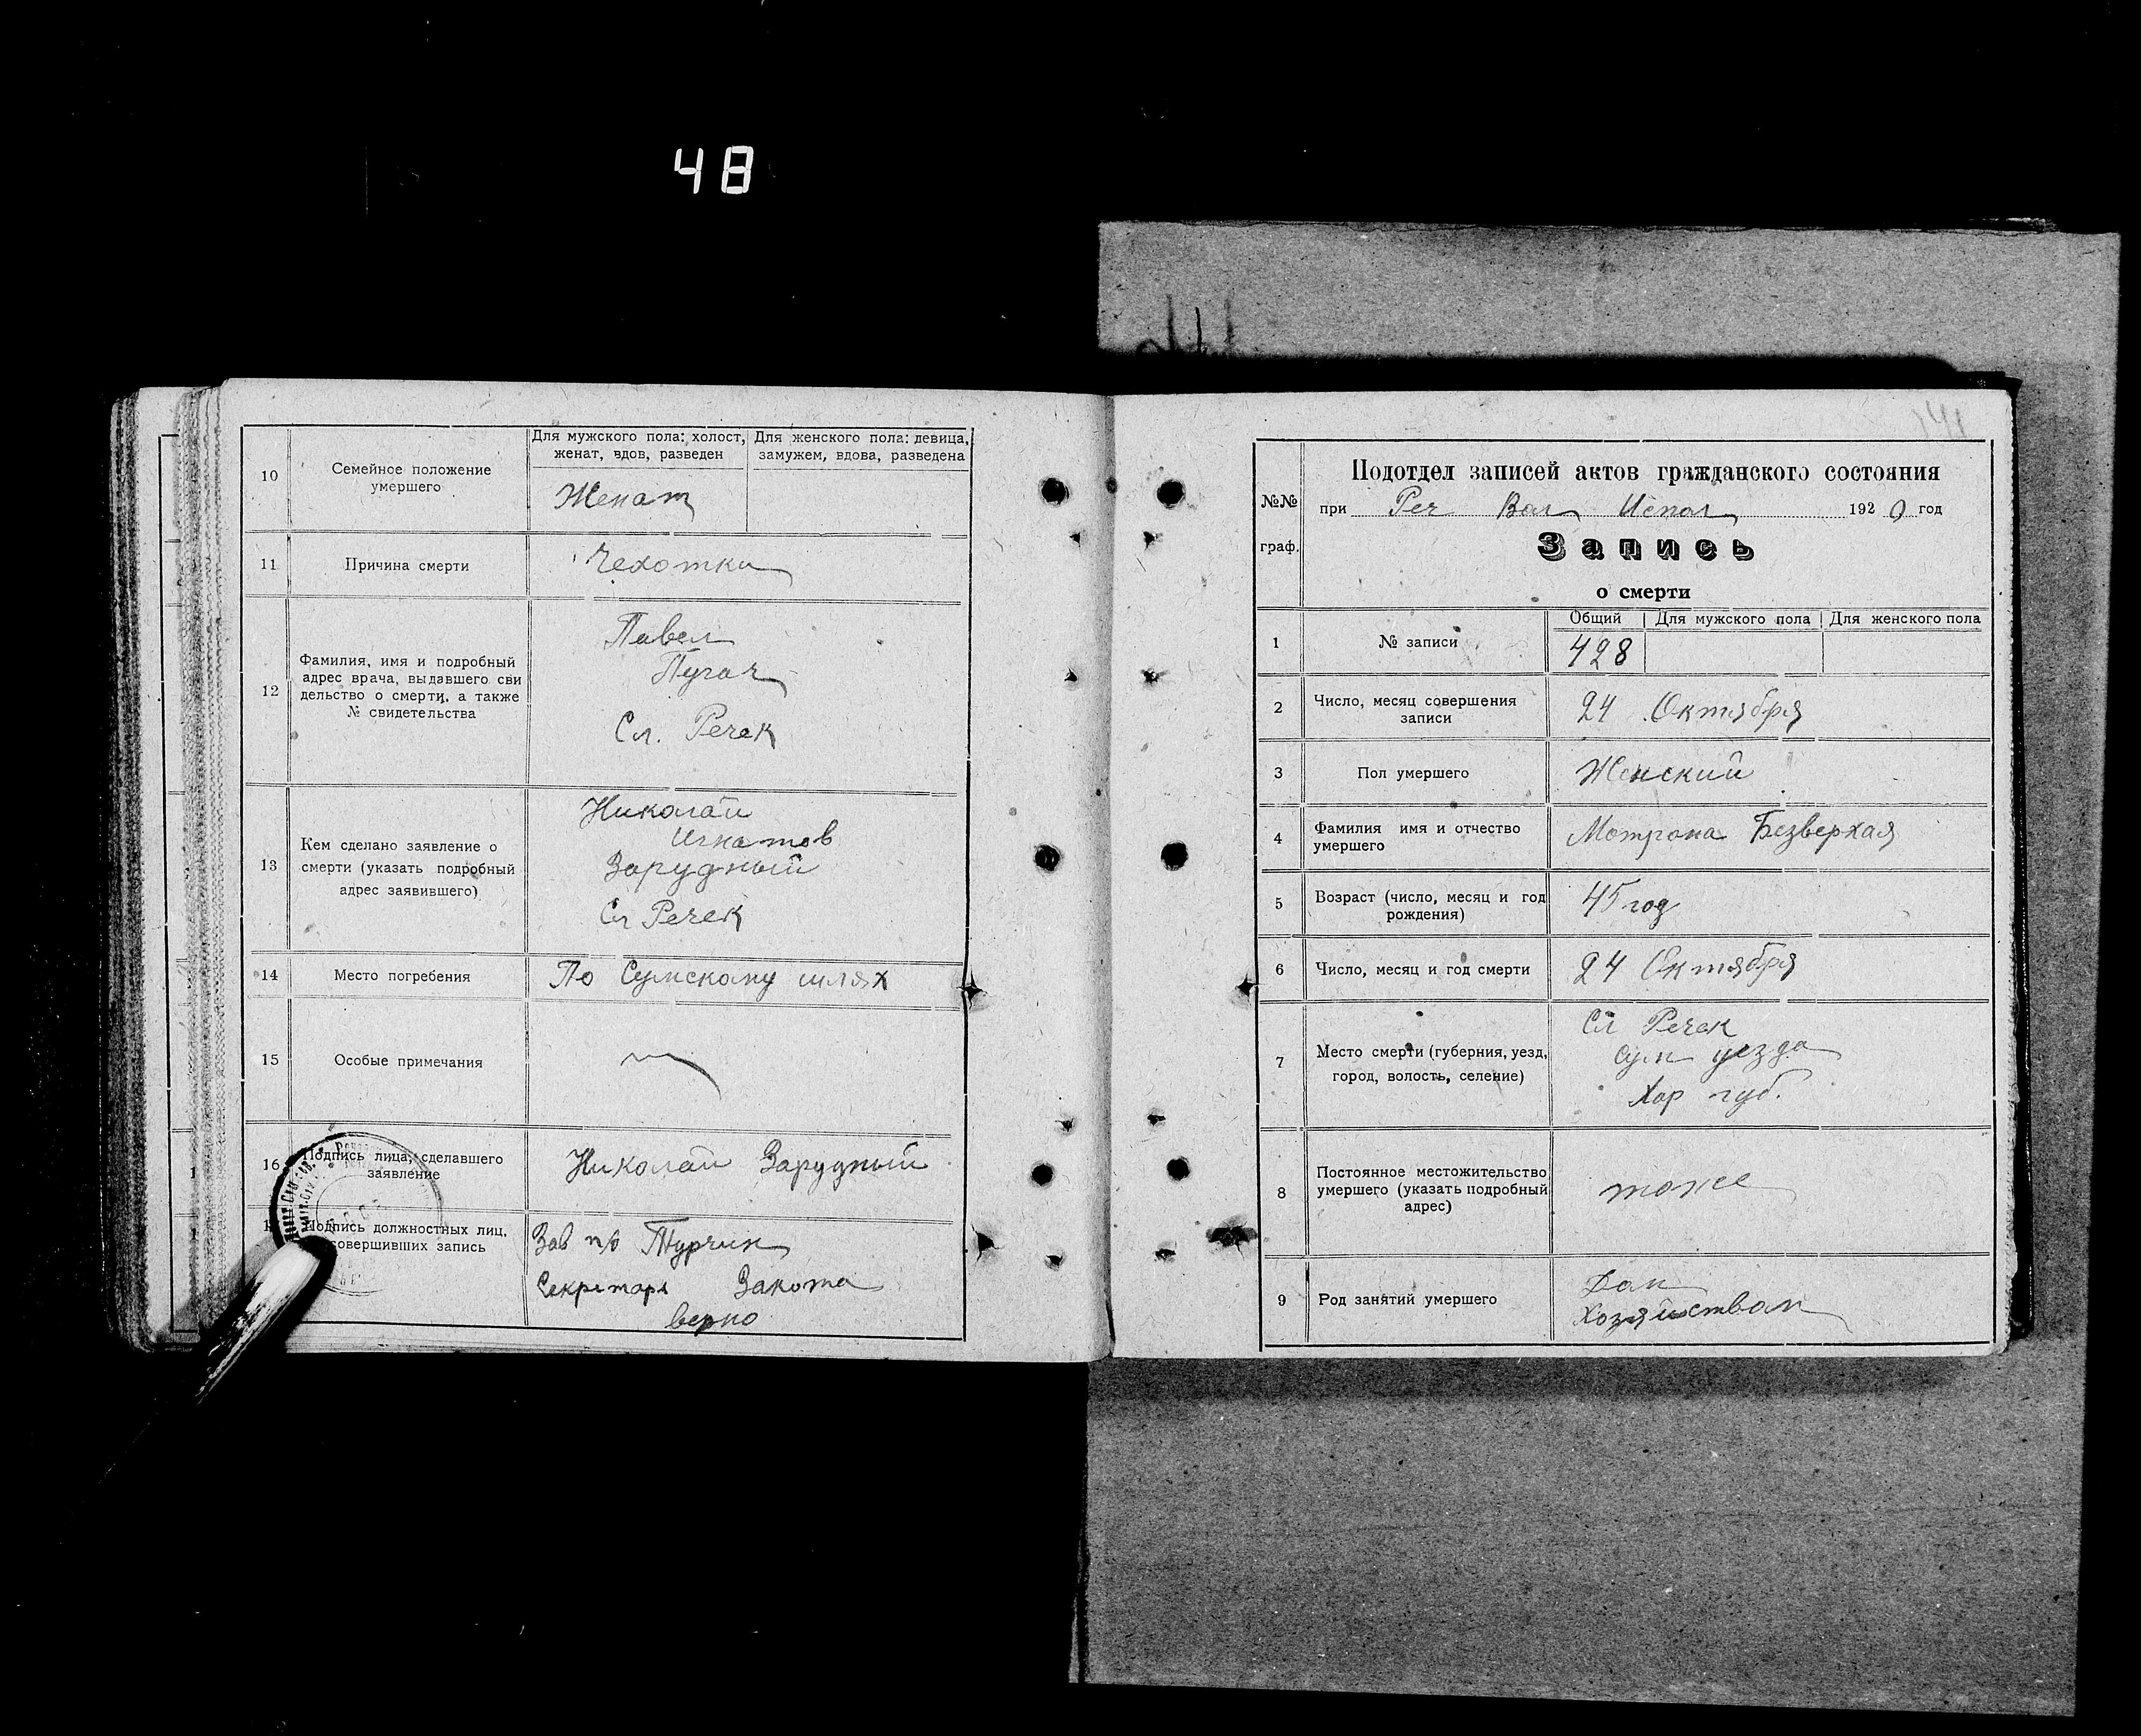 48
10
Семейное положение
умершего
Для мужского пола: холост,
женат, вдов, разведен
Для женского пола: девица,
замужем, вдова, разведена
Женат
11
Причина смерти
Чехотка
12
Фамилия, имя и подробный
адрес врача, выдавшего сви
дельство о смерти, а также
№ свидетельства
Павел
Пугач
Сл. Речек
13
Кем сделано заявление о
смерти (указать подробный
адрес заявившего)
Николай
Игнатов
Зарудный
Сл Речек
14
Место погребения
По Сумскому шлях
15
Особые примечания
16
Подпись лица, сделавшего
заявление
Николай Зарудный
Подпись должностных лиц,
совершивших запись
Зав п/о Турчин
Секретарь Закота
верно
141
№№
граф.
Подотдел записей актов гражданского состояния
при Реч Вол Испол 1920 год
Запись
о смерти
1
№ записи
Общий
Для мужского пола
Для женского пола
428
2
Число, месяц совершения
записи
24 Октября
3
Пол умершего
Женский
4
Фамилия имя и отчество
умершего
Мотрона Безверхая
5
Возраст (число, месяц и год
рождения)
45 год
6
Число, месяц и год смерти
24 Октября
7
Место смерти (губерния, уезд,
город, волость, селение)
Сл Речек
Сум уезда
Хар губ.
8
Постоянное местожительство
умершего (указать подробный
адрес)
тоже
9
Род занятий умершего
Дом
Хозяйством